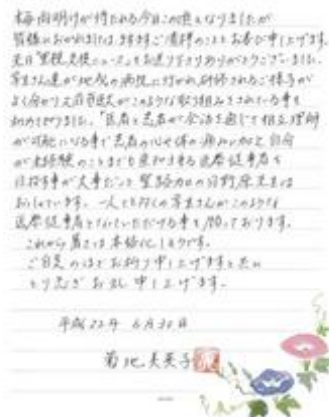 梅雨明けが待たれる今日この頃となりましたが
皆様におかれましては、ますますご清祥のこととお喜び申し上げます。
先日"里親支援ニュース"をお送り下さりありがとうございました。
学生さん達が地域の病院に行かれ研修されるご様子が
よく分り
このような取り組みをされている事を
初めて知りました。"医者と患者が会話を通じて相互理解
が可能になる事で患者の心や体の痛みが
自分
が未経験のことまでも感知出来る医療従事者を
目指す事が大事だ"と聖路加の日野原先生は
おっしゃいます。一人でも多くの学生さんがこのような
医療従事者となっていただける事を願っております。
これから暑さは本格化しそうです。
ご自愛のほどお祈り申し上げますと共に
とり急ぎお礼申し上げます。
平成22年 6月30日
菊地美英子